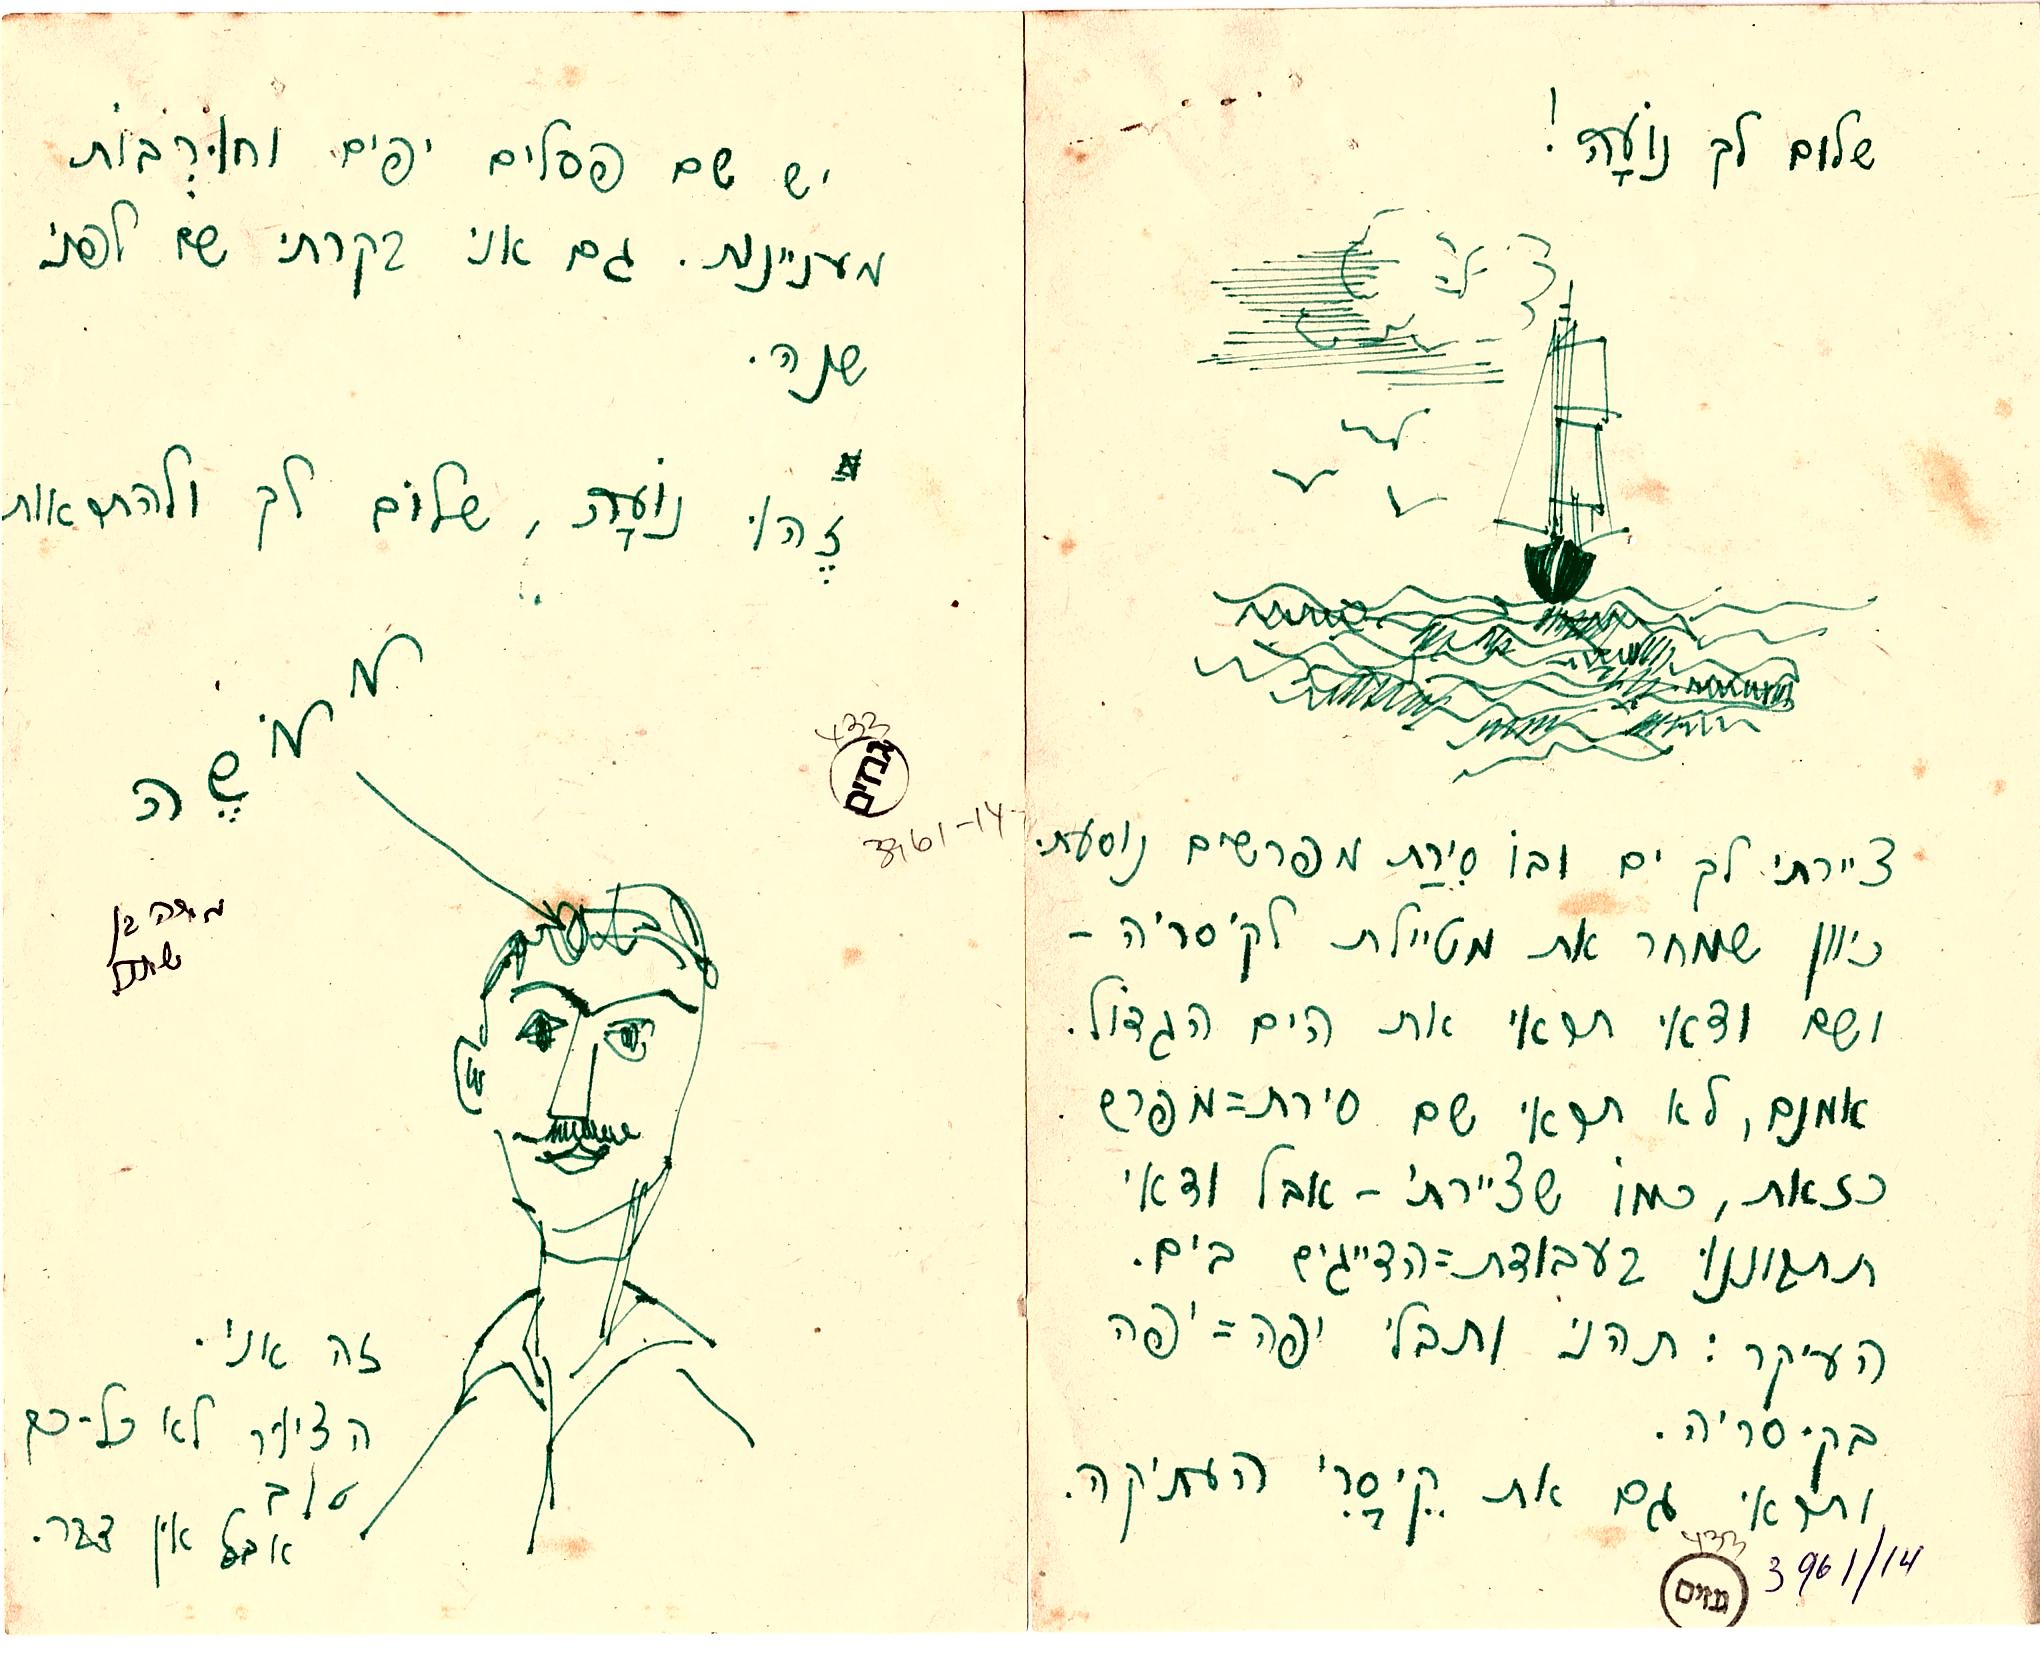 שלום לך נוֹעָה!
ציירתי לך ים ובוֹ סִירַת מפרשים נוסעת.
כיוון שמחר את מטיילת לקיסריה –
ושם ודאי תראי את הים הגדוֹל.
אמנם, לא תראי שם סירת=מפרש
כזאת, כמוֹ שציירתי – אבל ודאי
תתבונני בעבודת=הדייגים בים.
העיקר: תהני ותבלי יפה=יפה
בקיסריה.
ותראי גם את קֵיסָרִי העתיקה.
433
גנזים
3961/14
יש שם פסלים יפים וחוּרְבוֹת
מעניינות. גם אני בקרתי שם לפני
שנה.
זֶהוּ נוֹעָה, שלוֹם לך ולהתראות
ממֹשֶה
433
גנזים
3961-14
משה בן
שאול
זה אני.
הציור לא כל-כך
טוב
אבל אין דבר.